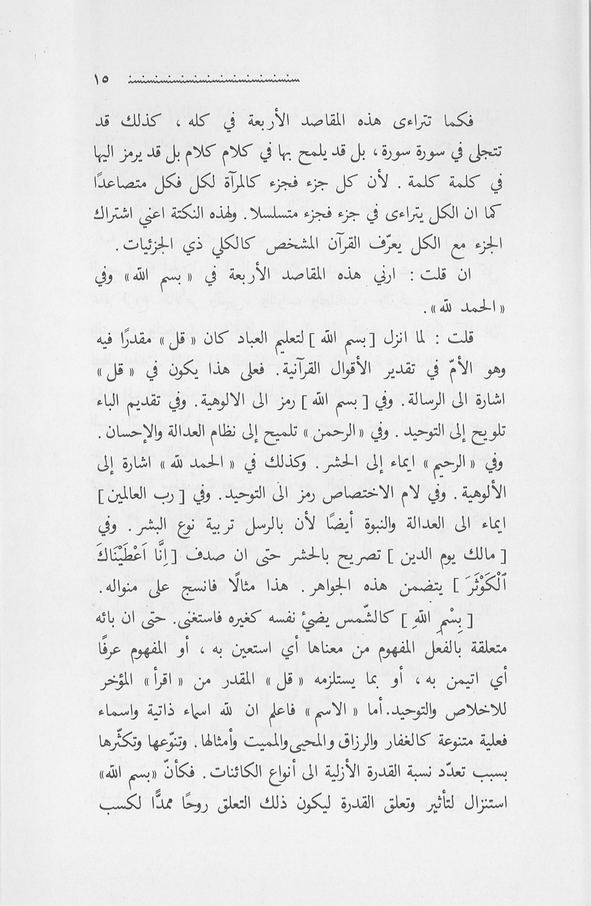 ١٥
فكما تتراءى هذه المقاصد الأربعة في كله ، كذلك قد
تتجلى في سورة سورة ، بل قد يلمح بها في كلام كلام بل قد يرمز اليها
في كلمة كلمة . لأن كل جزء فجزء كالمرآة لكل فكل متصاعدًا
كما ان الكل يتراءى في جزء فجزء متسلسلا. ولهذه النكتة اعني اشتراك
الجزء مع الكل يعرّف القرآن المشخص كالكلي ذي الجزئيات .
ان قلت : ارني هذه المقاصد الأربعة في «بسم الله» وفي
«الحمد لله».
قلت : لما انزل [بسم الله ] لتعليم العباد كان «قل» مقدرًا فيه
وهو الأمّ في تقدير الأقوال القرآنية. فعلى هذا يكون في «قل»
اشارة الى الرسالة. وفي [ بسم الله ] رمز الى الالوهية. وفي تقديم الباء
تلويح إلى التوحيد . وفي «الرحمن» تلميح إلى نظام العدالة والإحسان .
وفي «الرحيم» ايماء إلى الحشر . وكذلك في «الحمد لله» اشارة إلى
الألوهية . وفي لام الاختصاص رمز الى التوحيد. وفي [ رب العالمين ]
ايماء الى العدالة والنبوة أيضًا لأن بالرسل تربية نوع البشر . وفي
[ مالك يوم الدين ] تصريح بالحشر حتى ان صدف [ إِنَّا اَعْطَيْنَاكَ
ٱلْكَوْثَرَ ] يتضمن هذه الجواهر . هذا مثالًا فانسج على منواله.
[ بِسْمِ اللهِ ] كالشّمس يضئ نفسه كغيره فاستغنى. حتى ان بائه
متعلقة بالفعل المفهوم من معناها أي استعين به ، أو المفهوم عرفًا
أي اتيمن به ، أو بما يستلزمه «قل» المقدر من «اقرأ» المؤخر
للاخلاص والتوحيد. أما «الاسم» فاعلم ان لله اسماء ذاتية واسماء
فعلية متنوعة كالغفار والرزاق والمحيي والمميت وأمثالها. وتنوّعها وتكثّرها
بسبب تعدّد نسبة القدرة الأزلية الى أنواع الكائنات . فكأنّ «بسم الله»
استنزال لتأثير وتعلق القدرة ليكون ذلك التعلق روحًا ممدًّا لكسب